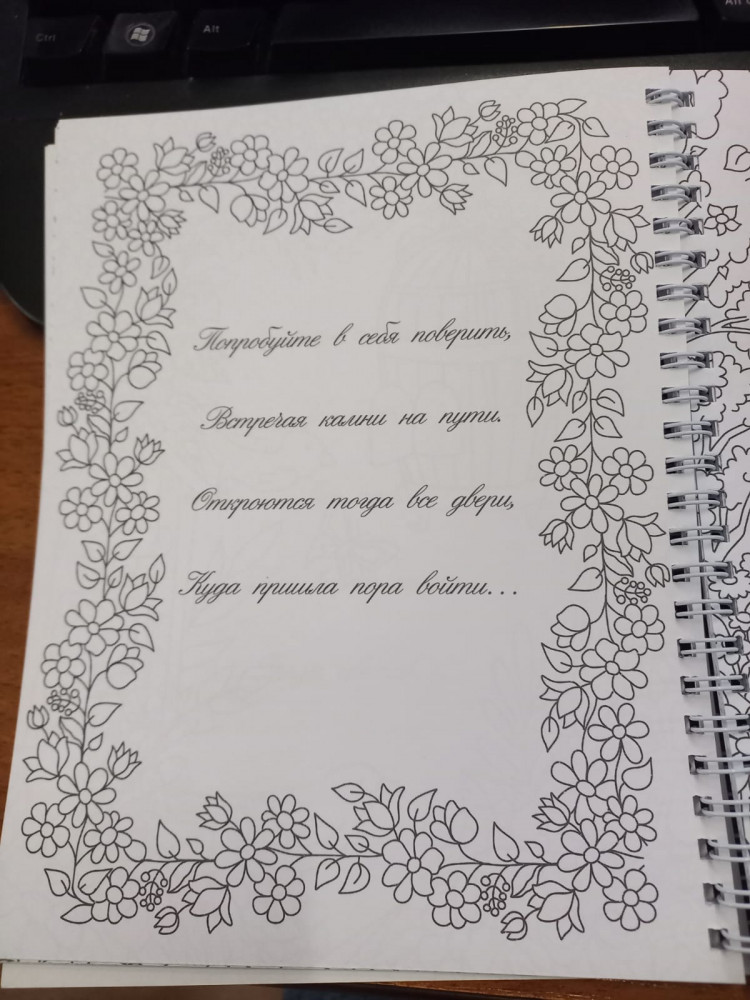 Ctrl
Alt
Alt
Попробуйте в себя поверить,
Встречая камни на пути.
Откроются тогда все двери,
Куда пришла пора войти...